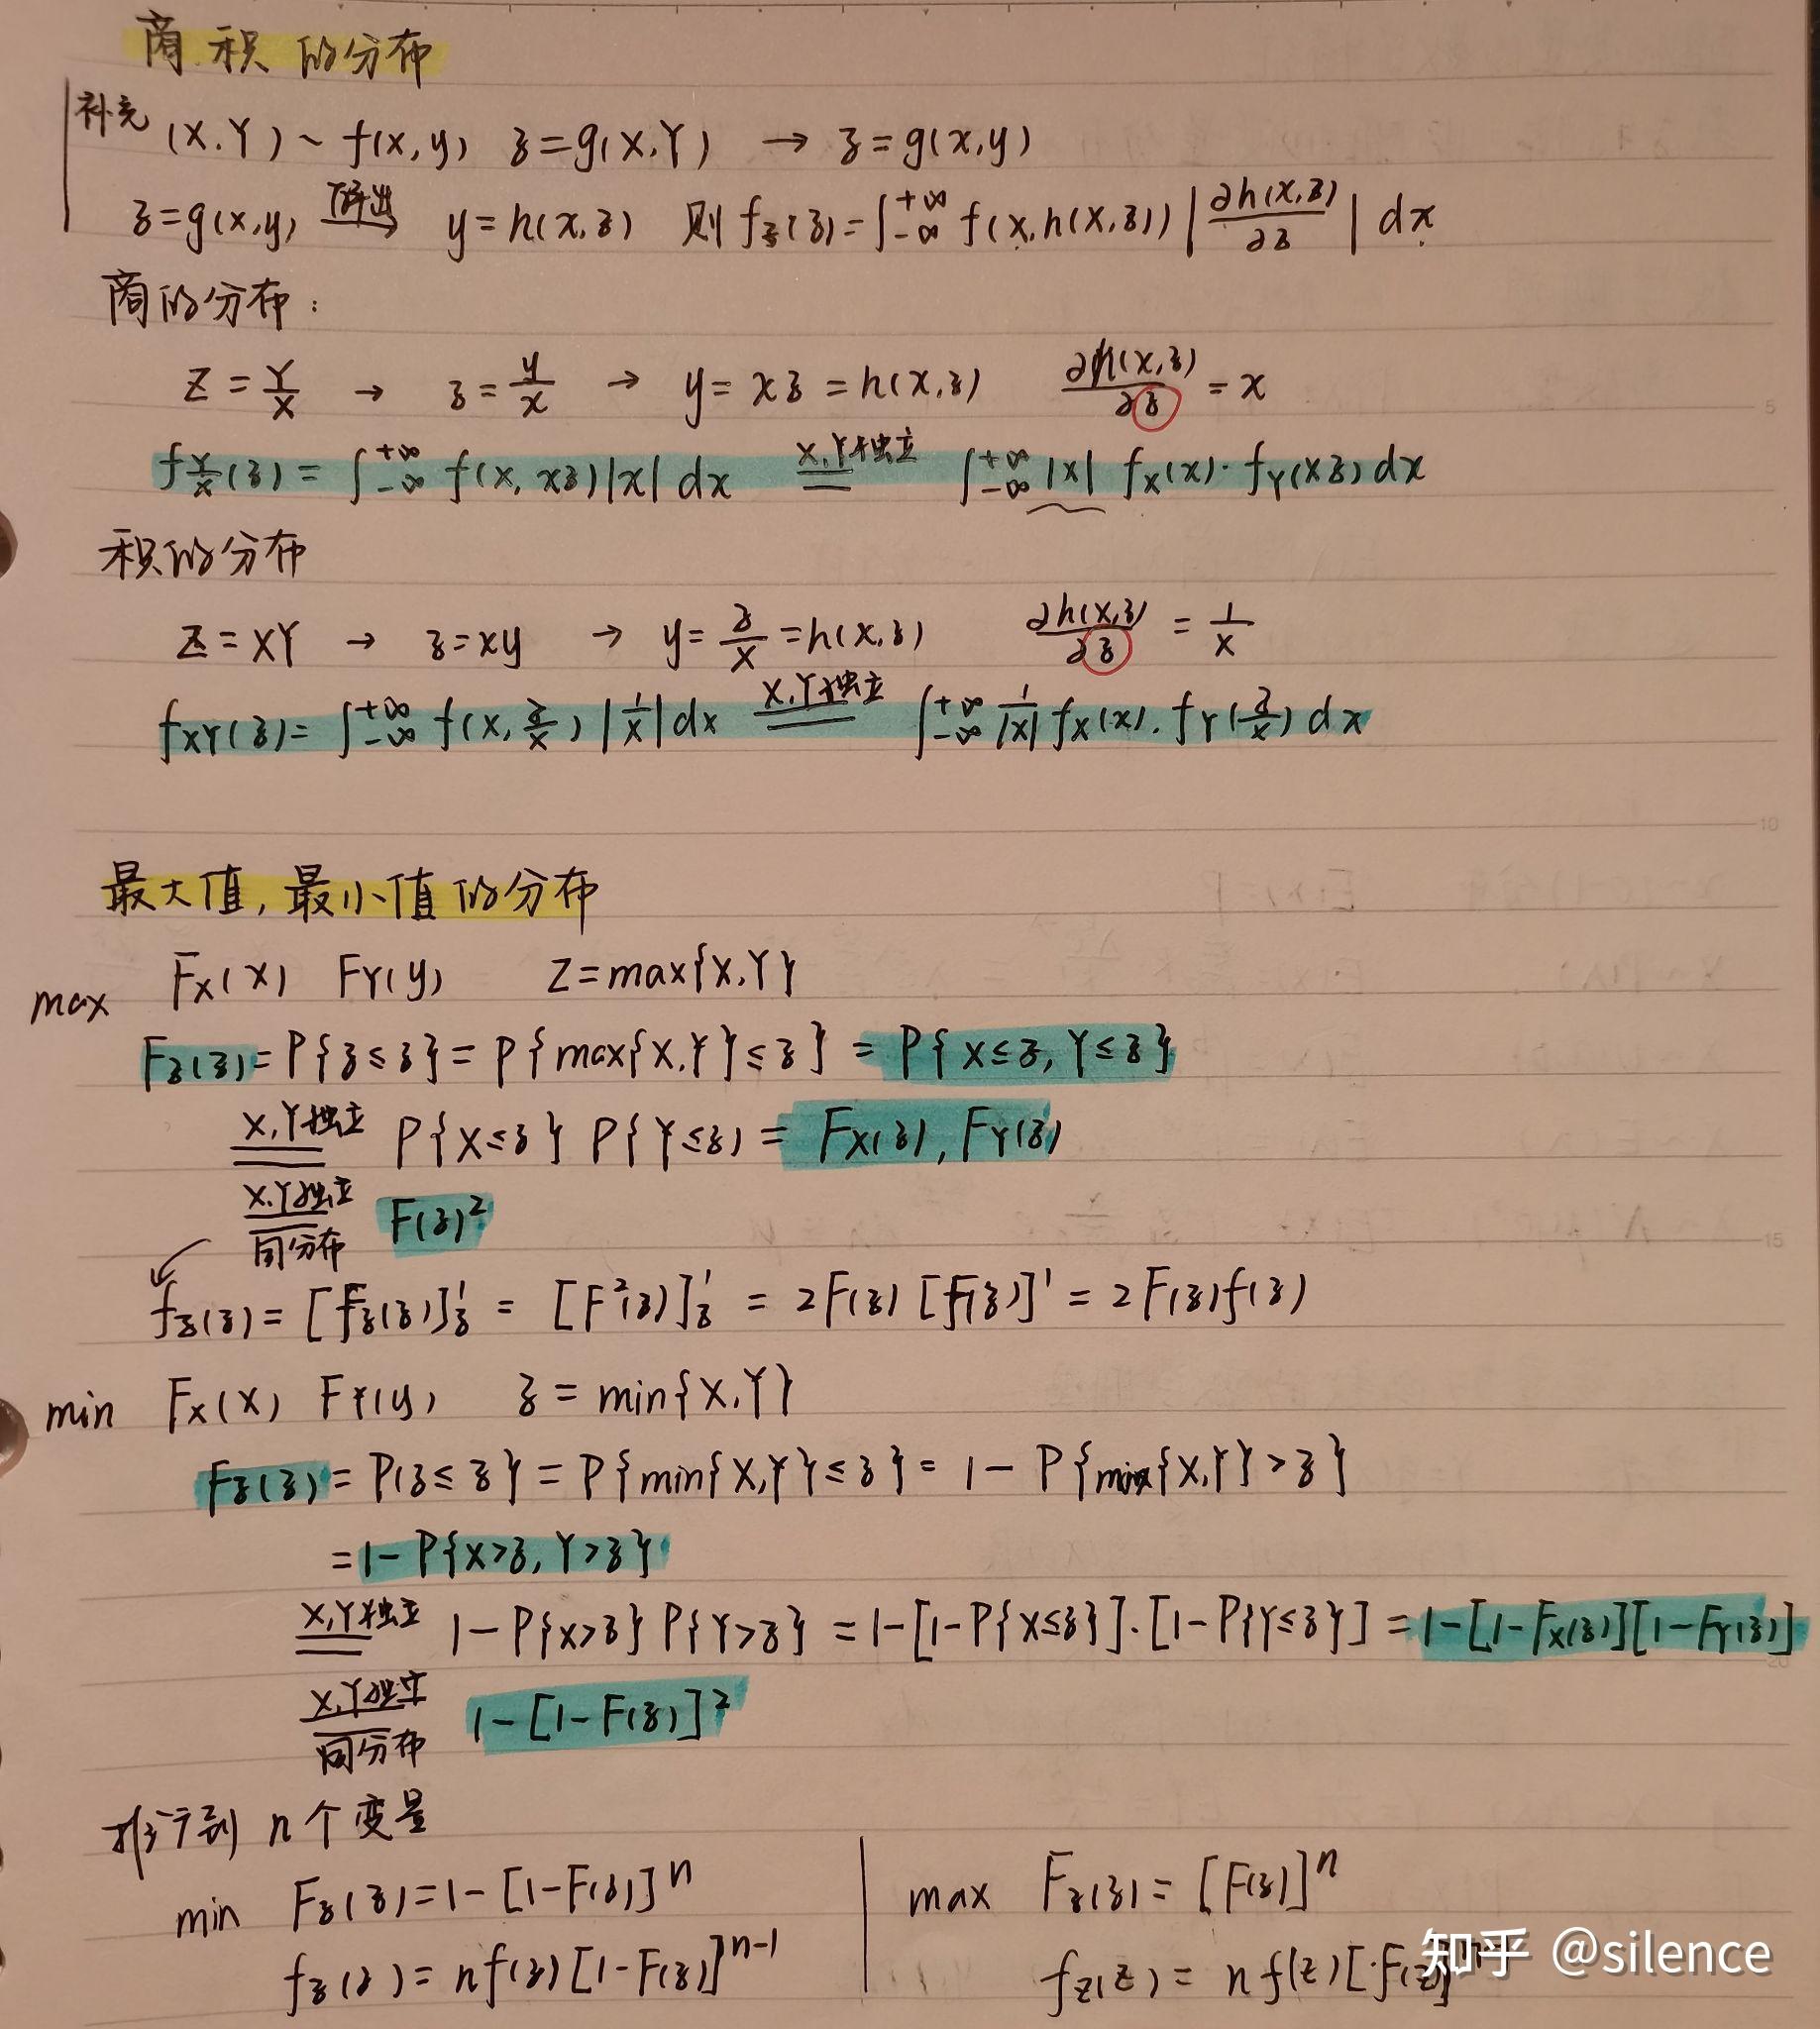 商 积 的分布
补充 (X.Y) ~ f(x,y) z=g(X,Y) → z=g(x,y)
z=g(x,y) 解出→ y=h(x,z) 则 f_Z(z)=∫_{-∞}^{+∞} f(x,h(x,z)) |∂h(x,z)/∂z| dx
商的分布:
Z=Y/X → z=y/x → y=xz=h(x,z) ∂h(x,z)/∂z = x
f_{Y/X}(z)=∫_{-∞}^{+∞} f(x,xz)|x|dx X,Y独立== ∫_{-∞}^{+∞} |x| f_X(x)·f_Y(xz)dx
积的分布
Z=XY → z=xy → y=z/x=h(x,z) ∂h(x,z)/∂z = 1/x
f_{XY}(z)=∫_{-∞}^{+∞} f(x,z/x)|1/x|dx X,Y独立== ∫_{-∞}^{+∞} 1/|x| f_X(x).f_Y(z/x)dx
最大值,最小值的分布
max F_X(x) F_Y(y) Z=max{X,Y}
F_Z(z)=P{z≤z}=P{max{X,Y}≤z}=P{X≤z,Y≤z}
X,Y独立== P{X≤z}P{Y≤z)=F_X(z),F_Y(z)
X,Y独立 同分布== F(z)²
f_Z(z)=[F_Z(z)]'_z=[F²(z)]'_z=2F(z)[F(z)]'=2F(z)f(z)
min F_X(x) F_Y(y) z=min{X,Y}
F_Z(z)=P(z≤z}=P{min{X,Y}≤z}=1-P{min{X,Y}>z}
=1-P{X>z,Y>z}
X,Y独立== 1-P{X>z}P{Y>z}=1-[1-P{X≤z}].[1-P{Y≤z}]=1-[1-F_X(z)][1-F_Y(z)]
X,Y独立 同分布== 1-[1-F(z)]²
推广到 n个变量
min F_Z(z)=1-[1-F(z)]^n
f_Z(z)=nf(z)[1-F(z)]^{n-1}
max F_Z(z)=[F(z)]^n
f_Z(z)=nf(z)[F(z)]
知乎 @silence